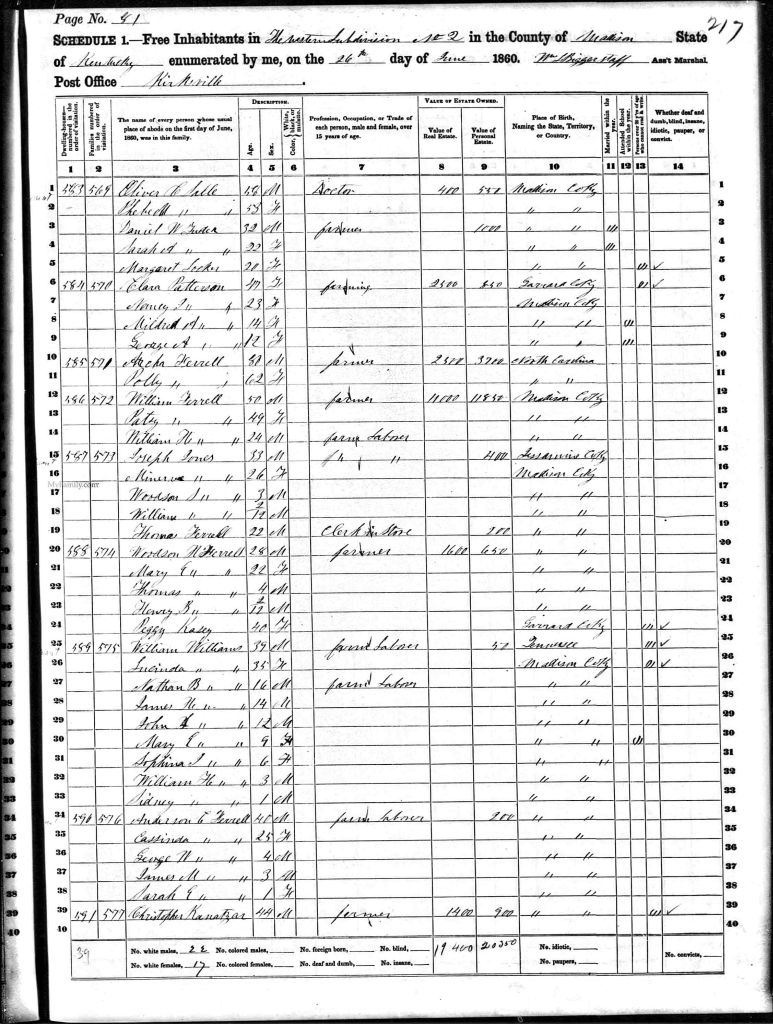 Page No. 81
217
SCHEDULE 1.—Free Inhabitants in The western Subdivision No 2 in the County of Madison State
of Kentucky enumerated by me, on the 26th day of June 1860. Wm Biggerstaff Ass't Marshal.
Post Office Kirksville
Dwelling-house—numbered in the order of visitation. Families numbered in the order of visitation. The name of every person whose usual place of abode on the first day of June, 1860, was in this family. DESCRIPTION. Age. Sex. Color, White, black, or mulatto. Profession, Occupation, or Trade of each person, male and female, over 15 years of age. VALUE OF ESTATE OWNED. Value of Real Estate. Value of Personal Estate. Place of Birth, Naming the State, Territory, or Country. Married within the year. Attended School within the year. Persons over 20 y'rs of age who cannot read & write. Whether deaf and dumb, blind, insane, idiotic, pauper, or convict.
1 2 3 4 5 6 7 8 9 10 11 12 13 14
1 583 569 Oliver C 58 M Doctor 400 550 Madison Co Ky 1
2 Phebe 〃 〃 53 F 〃 〃 2
3 Daniel W 32 M farmer 1000 〃 〃 3
4 Sarah A 〃 〃 22 F 〃 〃 4
5 Margaret 20 F 〃 〃 5
6 584 570 Clara Patterson 47 F farming 2500 850 Garrard Co Ky 6
7 Nancy J 〃 〃 23 F Madison Co Ky 7
8 Mildred A 〃 〃 14 F 〃 〃 8
9 George A 〃 〃 12 F 〃 〃 9
10 585 571 Ferrell M farmer 2300 3700 North Carolina 10
11 Polly 〃 〃 62 F 〃 〃 11
12 586 572 William Ferrell 50 M farmer 11000 11850 Madison Co Ky 12
13 Patsy 〃 〃 49 F 〃 〃 13
14 William H 〃 〃 24 M farm Laborer 〃 〃 14
15 587 573 Joseph Jones 33 M f〃 〃 400 Jessamine Co Ky 15
16 Minerva 〃 〃 26 F Madison Co Ky 16
17 Woodson J 〃 〃 3 M 〃 〃 17
18 William 〃 〃 2/12 M 〃 〃 18
19 Thomas Ferrell 22 M Clerk in Store 200 〃 〃 19
20 588 574 Woodson W Ferrell 28 M farmer 1600 650 〃 〃 20
21 Mary E 〃 〃 22 F 〃 〃 21
22 Thomas 〃 〃 4 M 〃 〃 22
23 Henry B 〃 〃 2/12 M 〃 〃 23
24 Peggy Kasey 40 F Garrard Co Ky 24
25 589 575 William Williams 39 M farm Laborer 50 Tennessee 25
26 Lucinda 〃 〃 35 F Madison Co Ky 26
27 Nathan B 〃 〃 16 M farm Laborer 〃 〃 27
28 James H 〃 〃 14 M 〃 〃 28
29 John 〃 〃 12 M 〃 〃 29
30 Mary E 〃 〃 9 F 〃 〃 30
31 Sophina J 〃 〃 6 F 〃 〃 31
32 William H 〃 〃 3 M 〃 〃 32
33 Sidney 〃 〃 1 M 〃 〃 33
34 590 576 Anderson C Ferrell 40 M farm Laborer 200 〃 〃 34
35 Cassinda 〃 〃 25 F 〃 〃 35
36 George W 〃 〃 4 M 〃 〃 36
37 James M 〃 〃 3 M 〃 〃 37
38 Sarah E 〃 〃 1 F 〃 〃 38
39 591 577 Christopher Kanatzar 44 M farmer 1400 900 〃 〃 39
40 40
39 No. white males, 22 No. colored males, No. foreign born, No. blind, 19400 20350 No. idiotic, No. convicts,
No. white females, 17 No. colored females, No. deaf and dumb, No. insane, No. paupers,
MyFamily.com